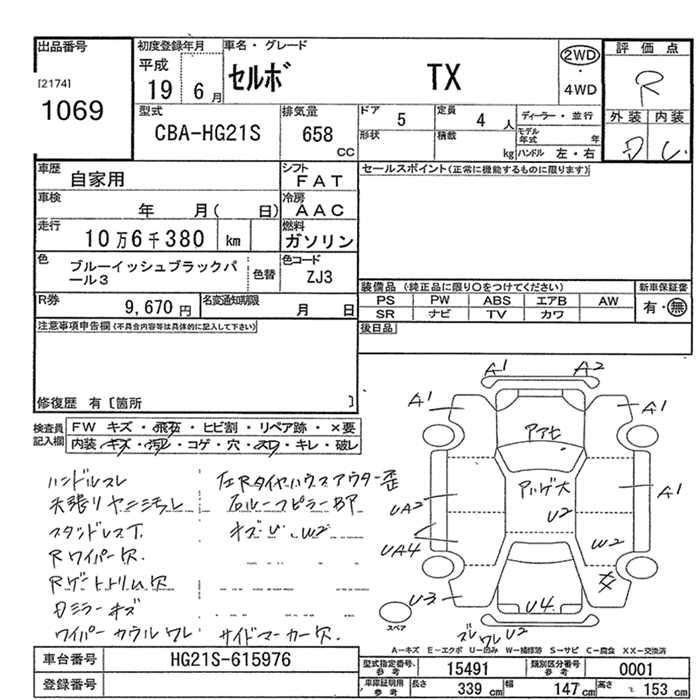 出品番号
[2174]
1069
初度登録年月
平成
19 6月
車名・グレード
セルボ TX
2WD
・
4WD
評価点
R
外装 内装
型式
CBA-HG21S
排気量
658
CC
ドア 5
定員 4 人
ディーラー・並行
形状
積載 kg
モデル年式 年
ハンドル 左・右
車歴
自家用
シフト
FAT
セールスポイント(正常に機能するものに限ります)
車検
年 月( 日)
冷房
AAC
走行
10万6千380 km
燃料
ガソリン
色
ブルーイッシュブラックパール3
色替
色コード
ZJ3
装備品(純正品に限り○をつけてください)
PS PW ABS エアB AW
SR ナビ TV カワ
新車保証書
有・無
R券
9,670円
名変通知期限
月 日
後日品
注意事項申告欄(不具合内容等は具体的に記入して下さい)
修復歴 有〔箇所 〕
検査員記入欄
FW キズ・飛石・ヒビ割・リペア跡・×要
内装・キズ・汚レ・コゲ・穴・スレ・キレ・破レ
ハンドルスレ
天張リヤニ汚レ
スタンドレスT.
Rワイパー欠.
Rゲートトリム欠
ワイパーカウルワレ サイドマーカー欠.
左Rタイヤハウスアウター歪
A1 A2
A1 A1
アセヒ
UA2
UA4
U2
A1
W2
U3
U4
U2
スペア
A=キズ E=エクボ U=凹み W=補修跡 S=サビ C=腐食 XX=交換済
車台番号 HG21S-615976
登録番号
型式指定番号.参考 15491
類別区分番号参考 0001
車庫証明用参考 長さ 339 cm 幅 147 cm 高さ 153 cm